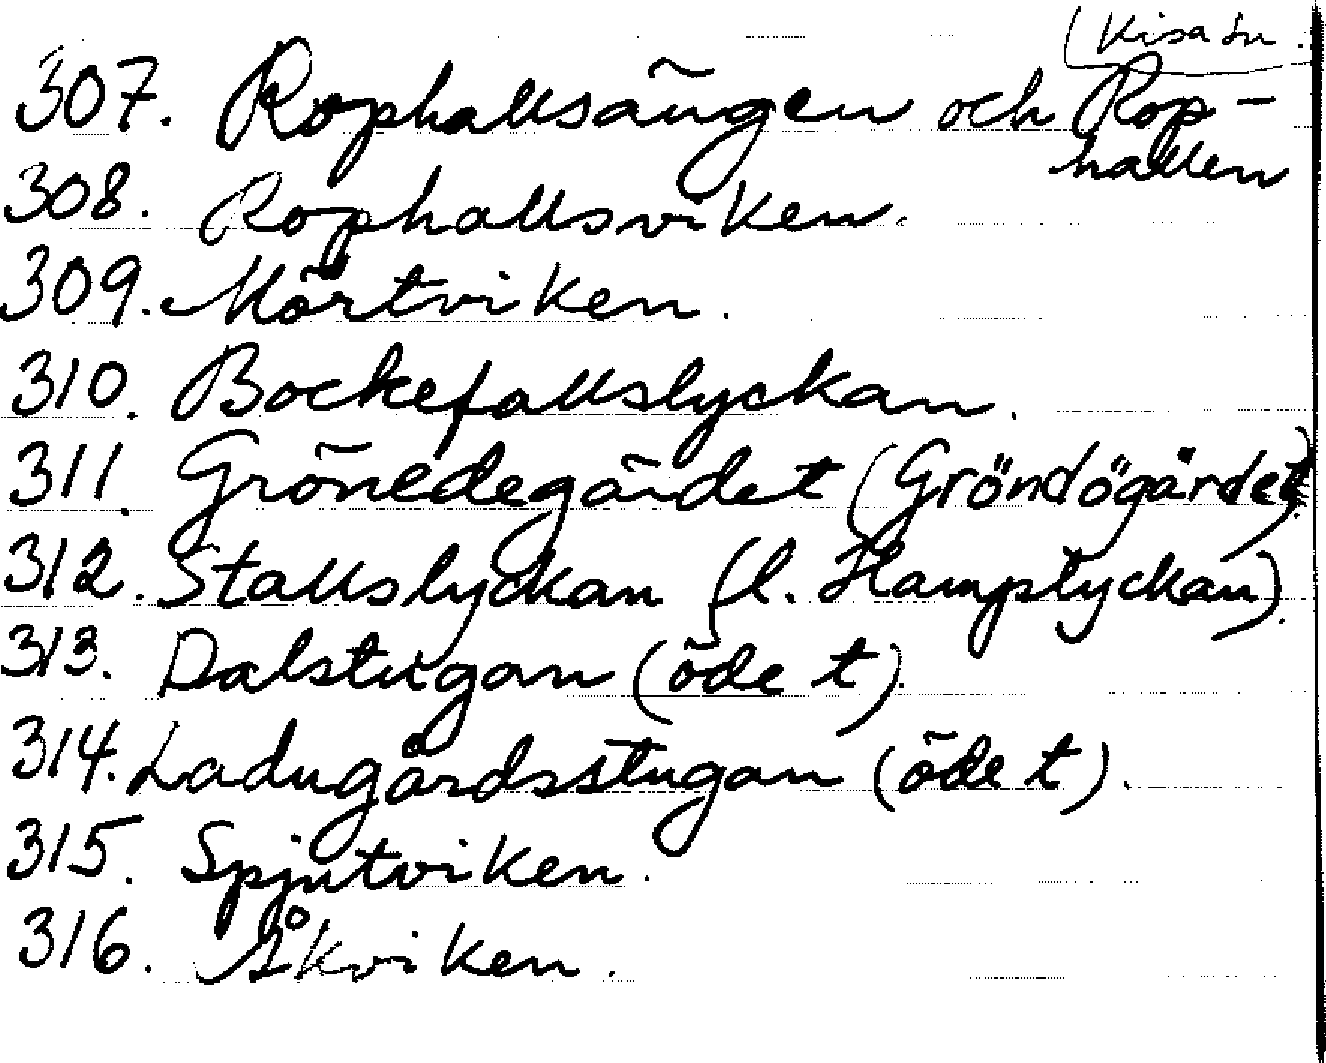 (Kisa sn.
307. Rophallsängen och Rop-
hallen
308. Rophallsviken.
309. Mörtviken.
310. Bockefallslyckan.
311. Grönedegärdet (Gröndögärdet)
312. Stallslyckan (l. Hamplyckan).
313. Dalstugan (öde t).
314. Ladugårdsstugan (öde t).
315. Spjutviken.
316. Åkviken.